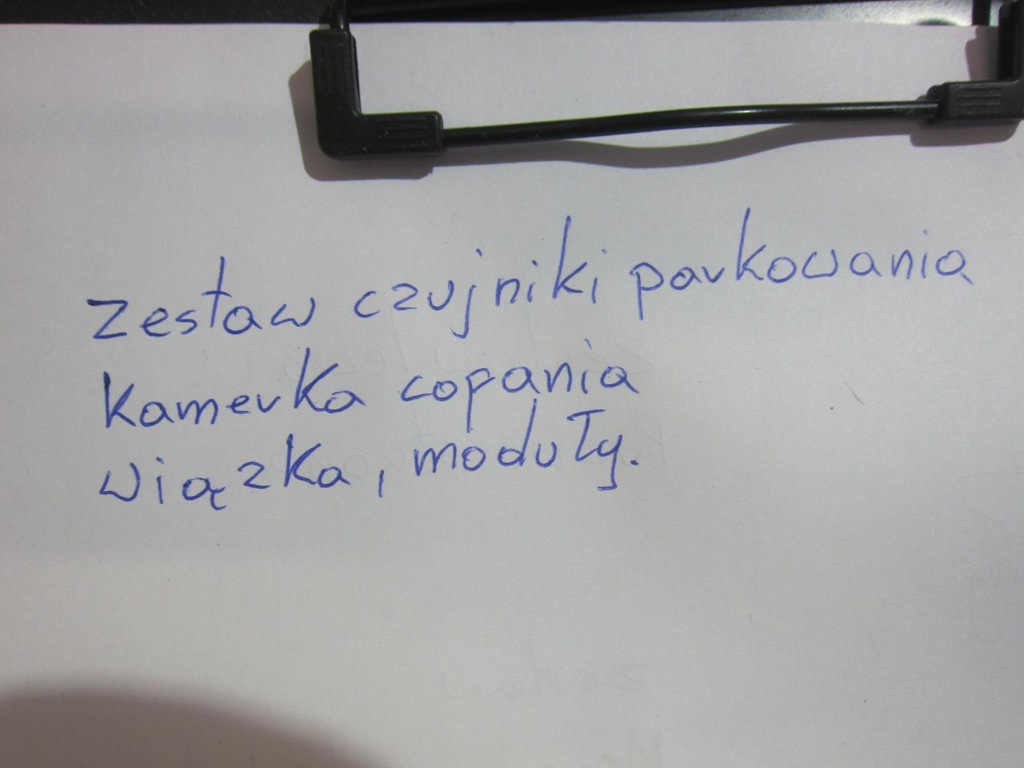 zestaw czujniki parkowania
kamerka cofania
wiązka, moduły.